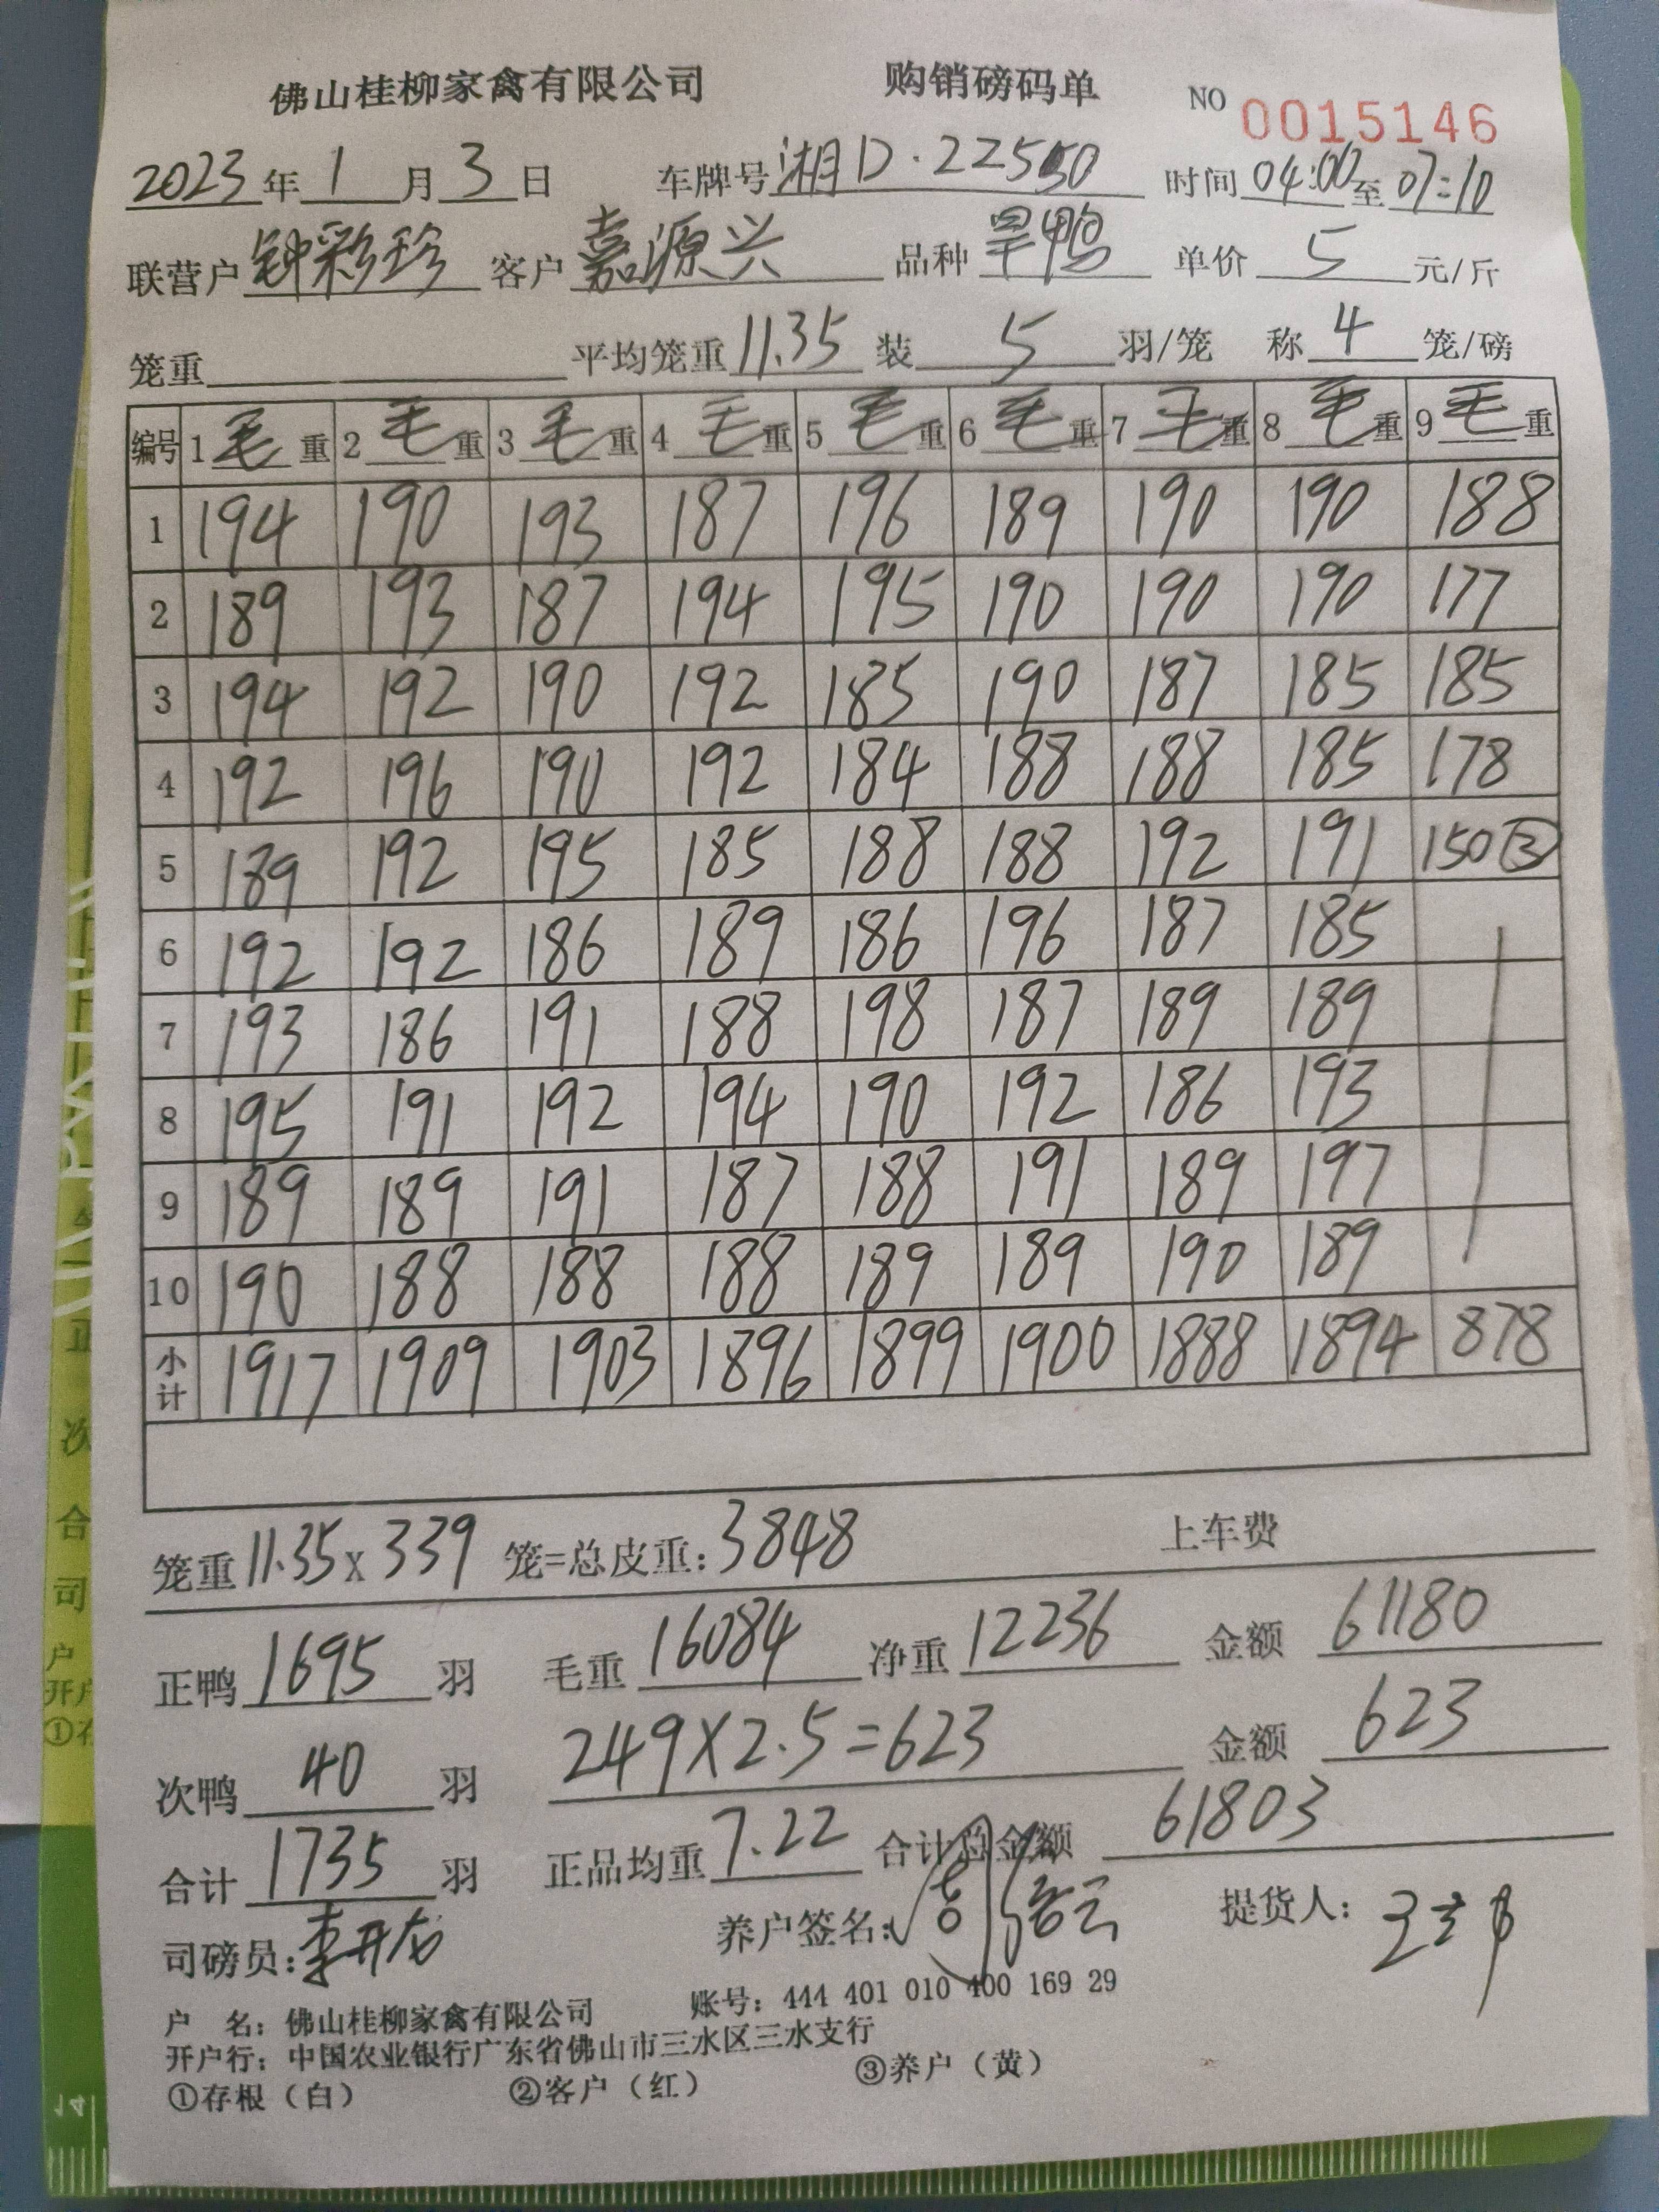 佛山桂柳家禽有限公司 购销磅码单 NO 0015146
2023年1月3日 车牌号湘D·22550 时间04:00至07:10
联营户钟彩珍 客户嘉源兴 品种旱鸭 单价5元/斤
笼重 平均笼重11.35 装5羽/笼 称4笼/磅
编号 1毛重 2毛重 3毛重 4毛重 5毛重 6毛重 7毛重 8毛重 9毛重
1 194 190 193 187 196 189 190 190 188
2 189 193 187 194 195 190 190 190 177
3 194 192 190 192 185 190 187 185 185
4 192 196 190 192 184 188 188 185 178
5 189 192 195 185 188 188 192 191 150③
6 192 192 186 189 186 196 187 185
7 193 186 191 188 198 187 189 189
8 195 191 192 194 190 192 186 193
9 189 189 191 187 188 191 189 197
10 190 188 188 188 189 189 190 189
小计 1917 1909 1903 1896 1899 1900 1888 1894 878
笼重11.35x339 笼=总皮重:3848 上车费
正鸭1695羽 毛重16084 净重12236 金额61180
次鸭40羽 249X2.5=623 金额623
合计1735羽 正品均重7.22 合计总金额61803
司磅员:李开龙 养户签名: 提货人:
户 名:佛山桂柳家禽有限公司 账号:444 401 010 400 169 29
开户行:中国农业银行广东省佛山市三水区三水支行
①存根(白) ②客户(红) ③养户(黄)
正
次
合
司
户
开户
①存
14